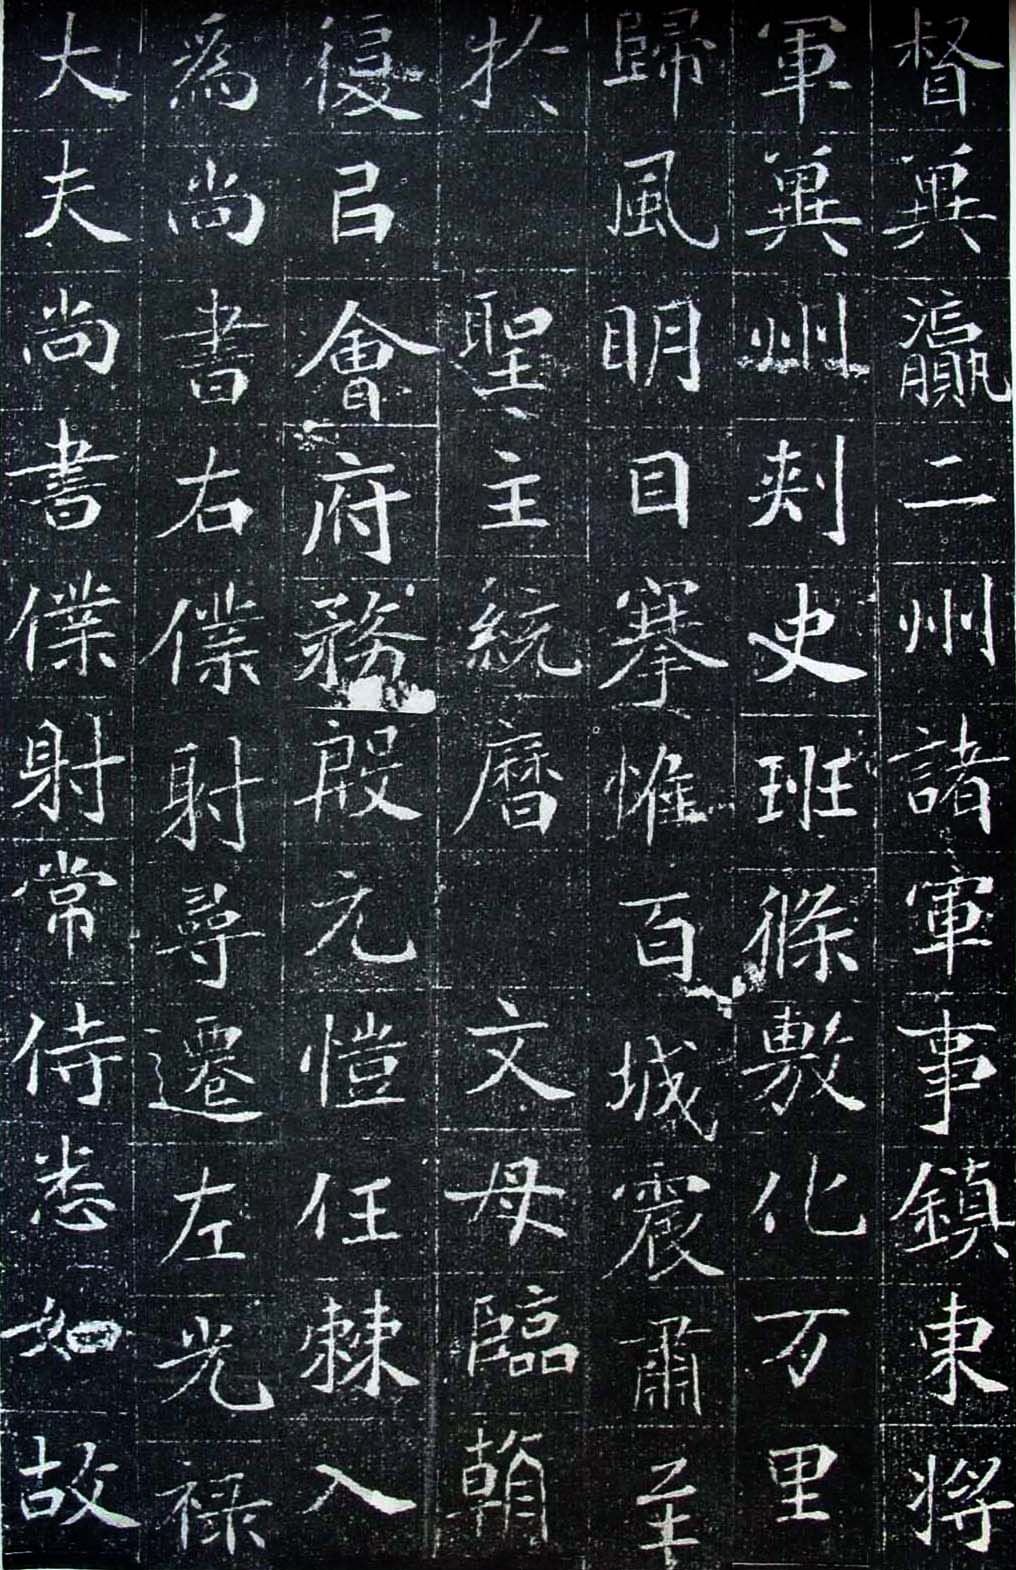 督冀瀛二州諸軍事鎮東將
軍冀州刺史班條敷化万里
歸風明目搴惟百城震肅至
於聖主統曆文母臨朝
復官會府務殷元愷任棘入
為尚書右僕射尋遷左光祿
大夫尚書僕射常侍悉如故